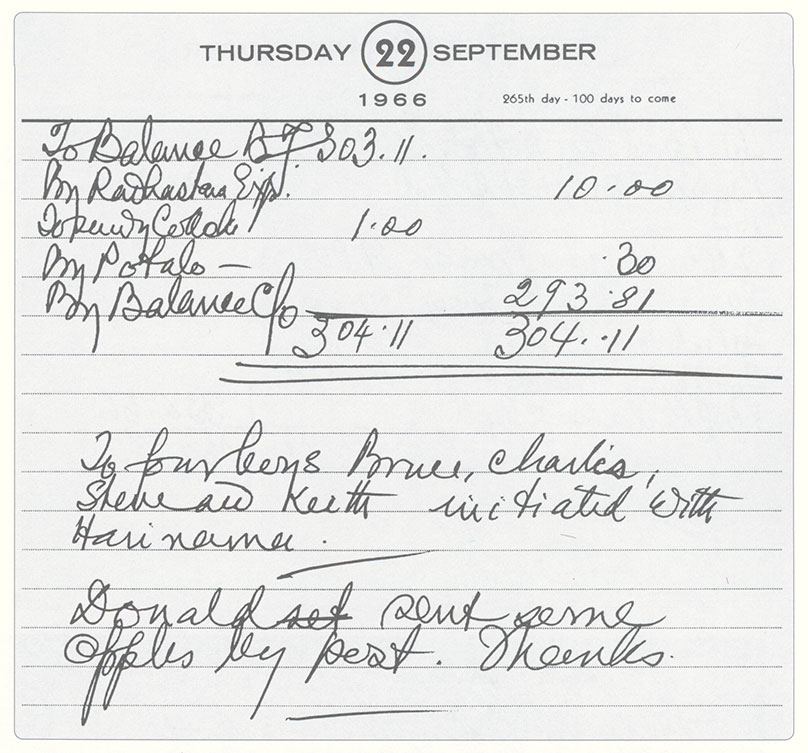 THURSDAY 22 SEPTEMBER
1966 265th day - 100 days to come
To Balance B/F 303.11.
By Radhastami Exp. 10.00
1.00
By Potato — .30
By Balance C/o 293.81
304.11 304.11
To four boys Bruce, Charles,
Steve and Keith initiated with
Harinama.
Donald set sent some
apples by post. Thanks.